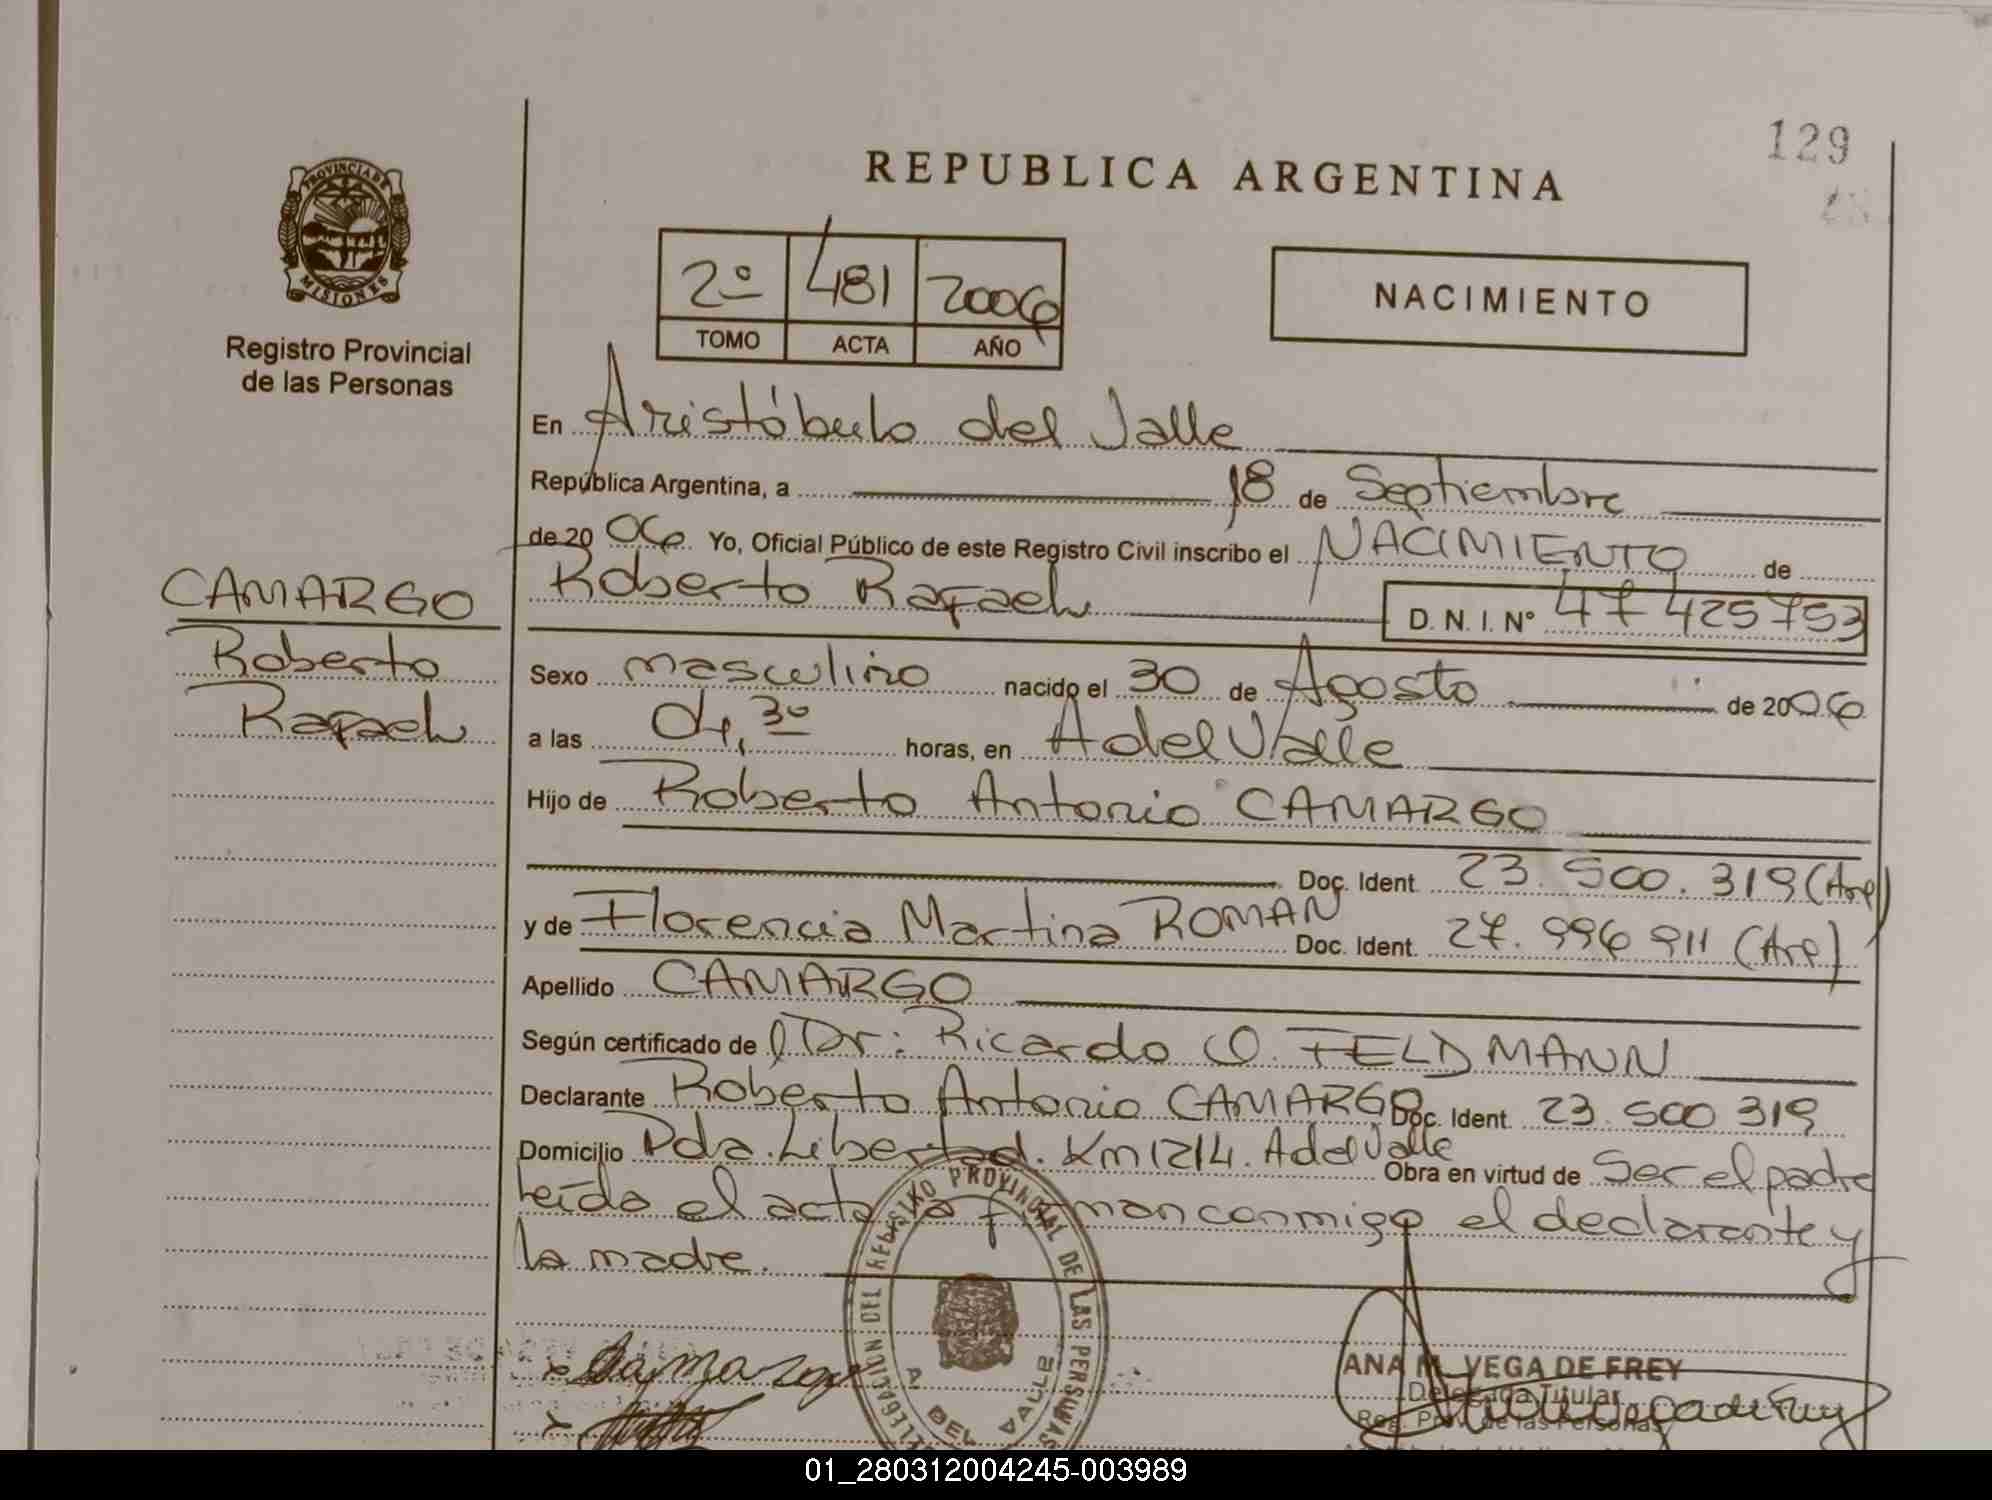 129
REPUBLICA ARGENTINA
PROVINCIA DE
MISIONES
Registro Provincial
de las Personas
2º 481 2006
TOMO ACTA AÑO
NACIMIENTO
En Aristóbulo del Valle
República Argentina, a 18 de Septiembre
de 2006 Yo, Oficial Público de este Registro Civil inscribo el NACIMIENTO de
CAMARGO
Roberto
Rafael
Roberto Rafael D. N. I. Nº 47 425 753
Sexo masculino nacido el 30 de Agosto de 2006
a las 04,30 horas, en A del Valle
Hijo de Roberto Antonio CAMARGO
Doc. Ident. 23.500.319 (Arg)
y de Florencia Martina ROMAN Doc. Ident. 27.996 911 (Arg)
Apellido CAMARGO
Según certificado de Dr: Ricardo O. FELDMANN
Declarante Roberto Antonio CAMARGO Doc. Ident. 23.500 319
Domicilio Pda. Libertad. Km 1214. A del Valle Obra en virtud de Ser el padre
leída el acta la firman conmigo el declarante y
la madre.
DELEGACION DEL REGISTRO PROVINCIAL DE LAS PERSONAS
A. DEL VALLE
Camargo
ANA M. VEGA DE FREY
Delegada Titular
Reg. Prov. de las Personas
01_280312004245-003989